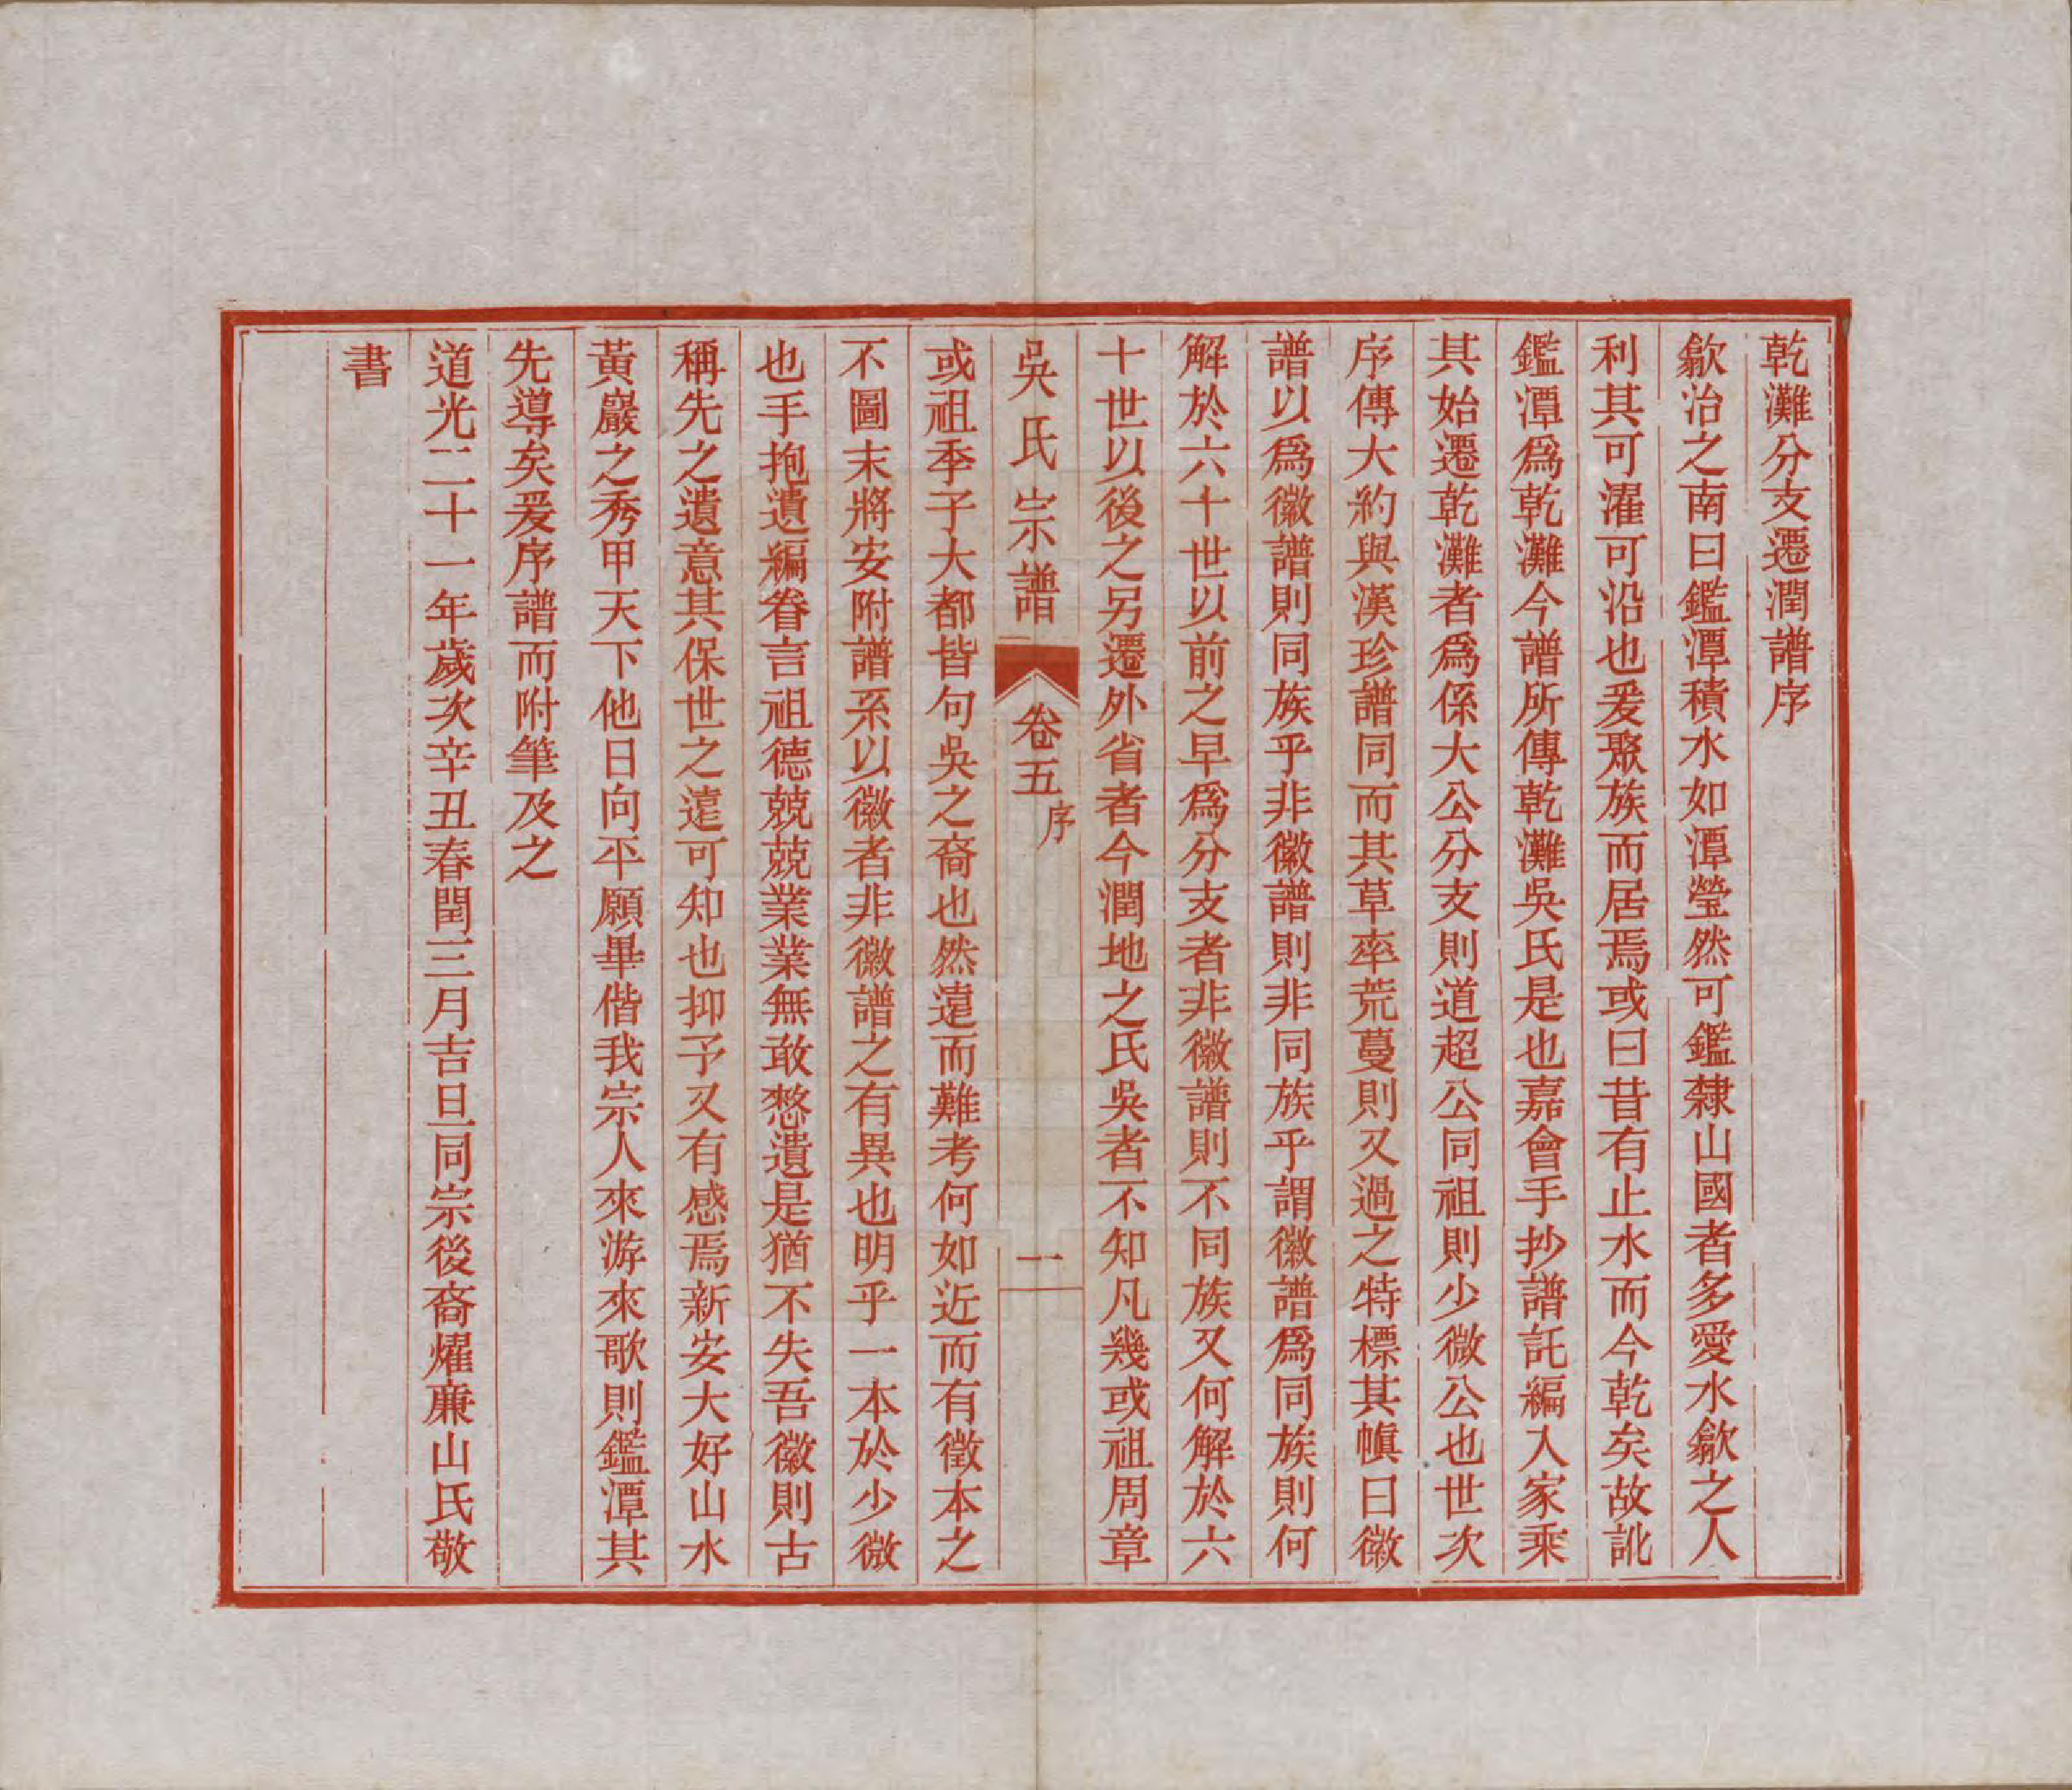 乾灘分支遷潤譜序
歙治之南曰鑑潭積水如潭瑩然可鑑隸山國者多愛水歙之人
利其可濯可沿也爰聚族而居焉或曰昔有止水而今乾矣故訛
鑑潭爲乾灘今譜所傳乾灘吳氏是也嘉會手抄譜託編入家乘
其始遷乾灘者爲係大公分支則道超公同祖則少微公也世次
序傳大約與漢珍譜同而其草率荒蔓則又過之特標其幀曰徽
譜以爲徽譜則同族乎非徽譜則非同族乎謂徽譜爲同族則何
解於六十世以前之早爲分支者非徽譜則不同族又何解於六
十世以後之另遷外省者今潤地之氏吳者不知凡幾或祖周章
吳氏宗譜 卷五 序 一
或祖季子大都皆句吳之裔也然遠而難考何如近而有徵本之
不圖末將安附譜系以徽者非徽譜之有異也明乎一本於少微
也手抱遺編眷言祖德兢兢業業無敢愁遺是猶不失吾徽則古
稱先之遺意其保世之遠可知也抑予又有感焉新安大好山水
黃巖之秀甲天下他日向平願畢偕我宗人來游來歌則鑑潭其
先導矣爰序譜而附筆及之
道光二十一年歲次辛丑春閏三月吉旦同宗後裔燿廉山氏敬
書